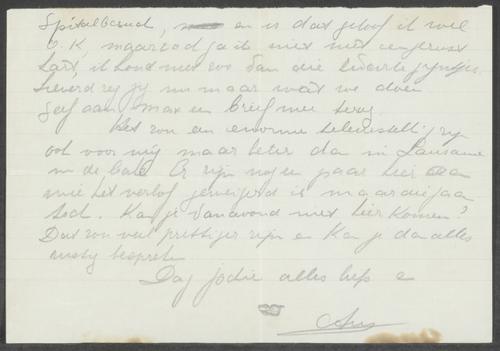 en is dat geloof ik wel
O.K. maar zod ga ik niet met een gerust
hart, ik houd niet zoo van die
zeg jij nu maar wat we doen
Geef aan Max een brief mee terug.
Het zou een enorme teleurstelling zijn
ook voor mij maar beter dan in Lausanne
in de Er zijn nog een paar hier
wie het verlof geweigerd is maar die gaan
toch. Kan je vanavond niet hier komen?
Dat zou veel prettiger zijn en kan je dan alles
rustig bespreken
Dag jodie alles liefs e